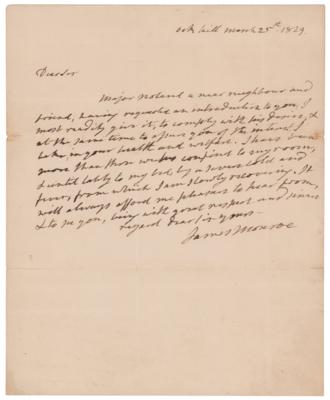 Oak hill March 25th 1829
Dear Sir
Major Noland a near neighbour and
friend, having requested an introduction to you, I
most readily give it, to comply with his desire, &
at the same time to assure you of the interest I
take, in your health and welfare. I have been
more than three weeks confin'd to my room,
& until lately to my bed by a severe cold and
fever, from which I am slowly recovering. It
will always afford me pleasure to hear from,
& to see you, being with great respect and sincere
regard dear Sir yours
James Monroe